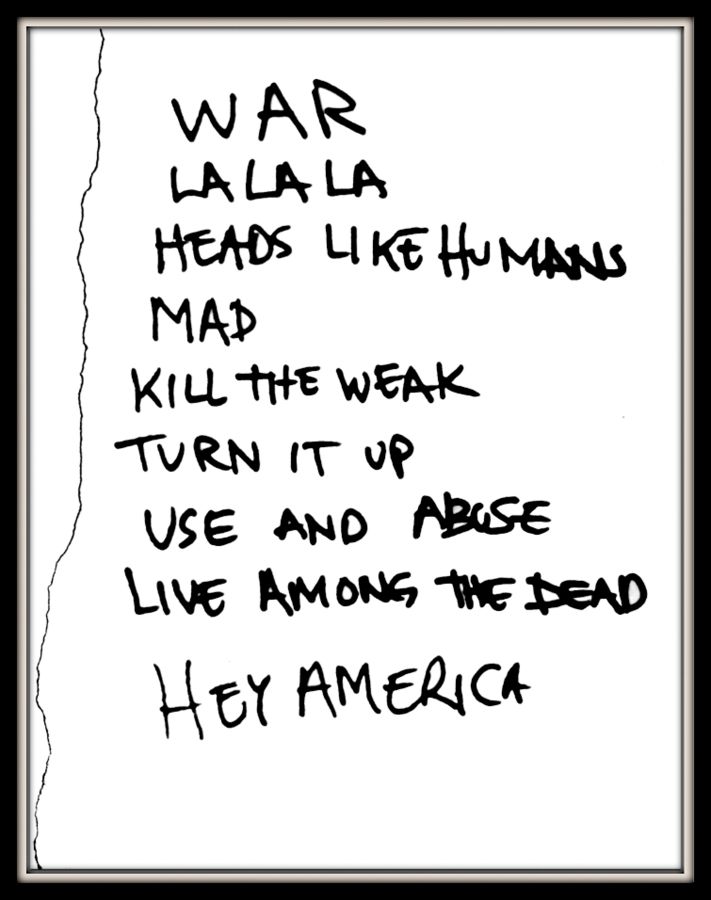 WAR
LA LA LA
HEADS LIKE HUMANS
MAD
KILL THE WEAK
TURN IT UP
USE AND ABUSE
LIVE AMONG THE DEAD
HEY AMERICA